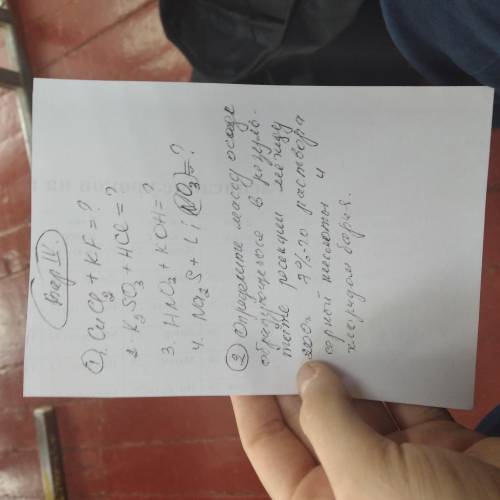 Вар IV.
1) 1. CuCl2 + KF = ?
2. K2SO3 + HCl = ?
3. HNO3 + KOH = ?
4. Na2S + Li NO3 = ?
2) Определите массу осадка
образующегося в резуль-
тате реакции между
200г 7%-го раствора
серной кислоты и
хлоридом бария.